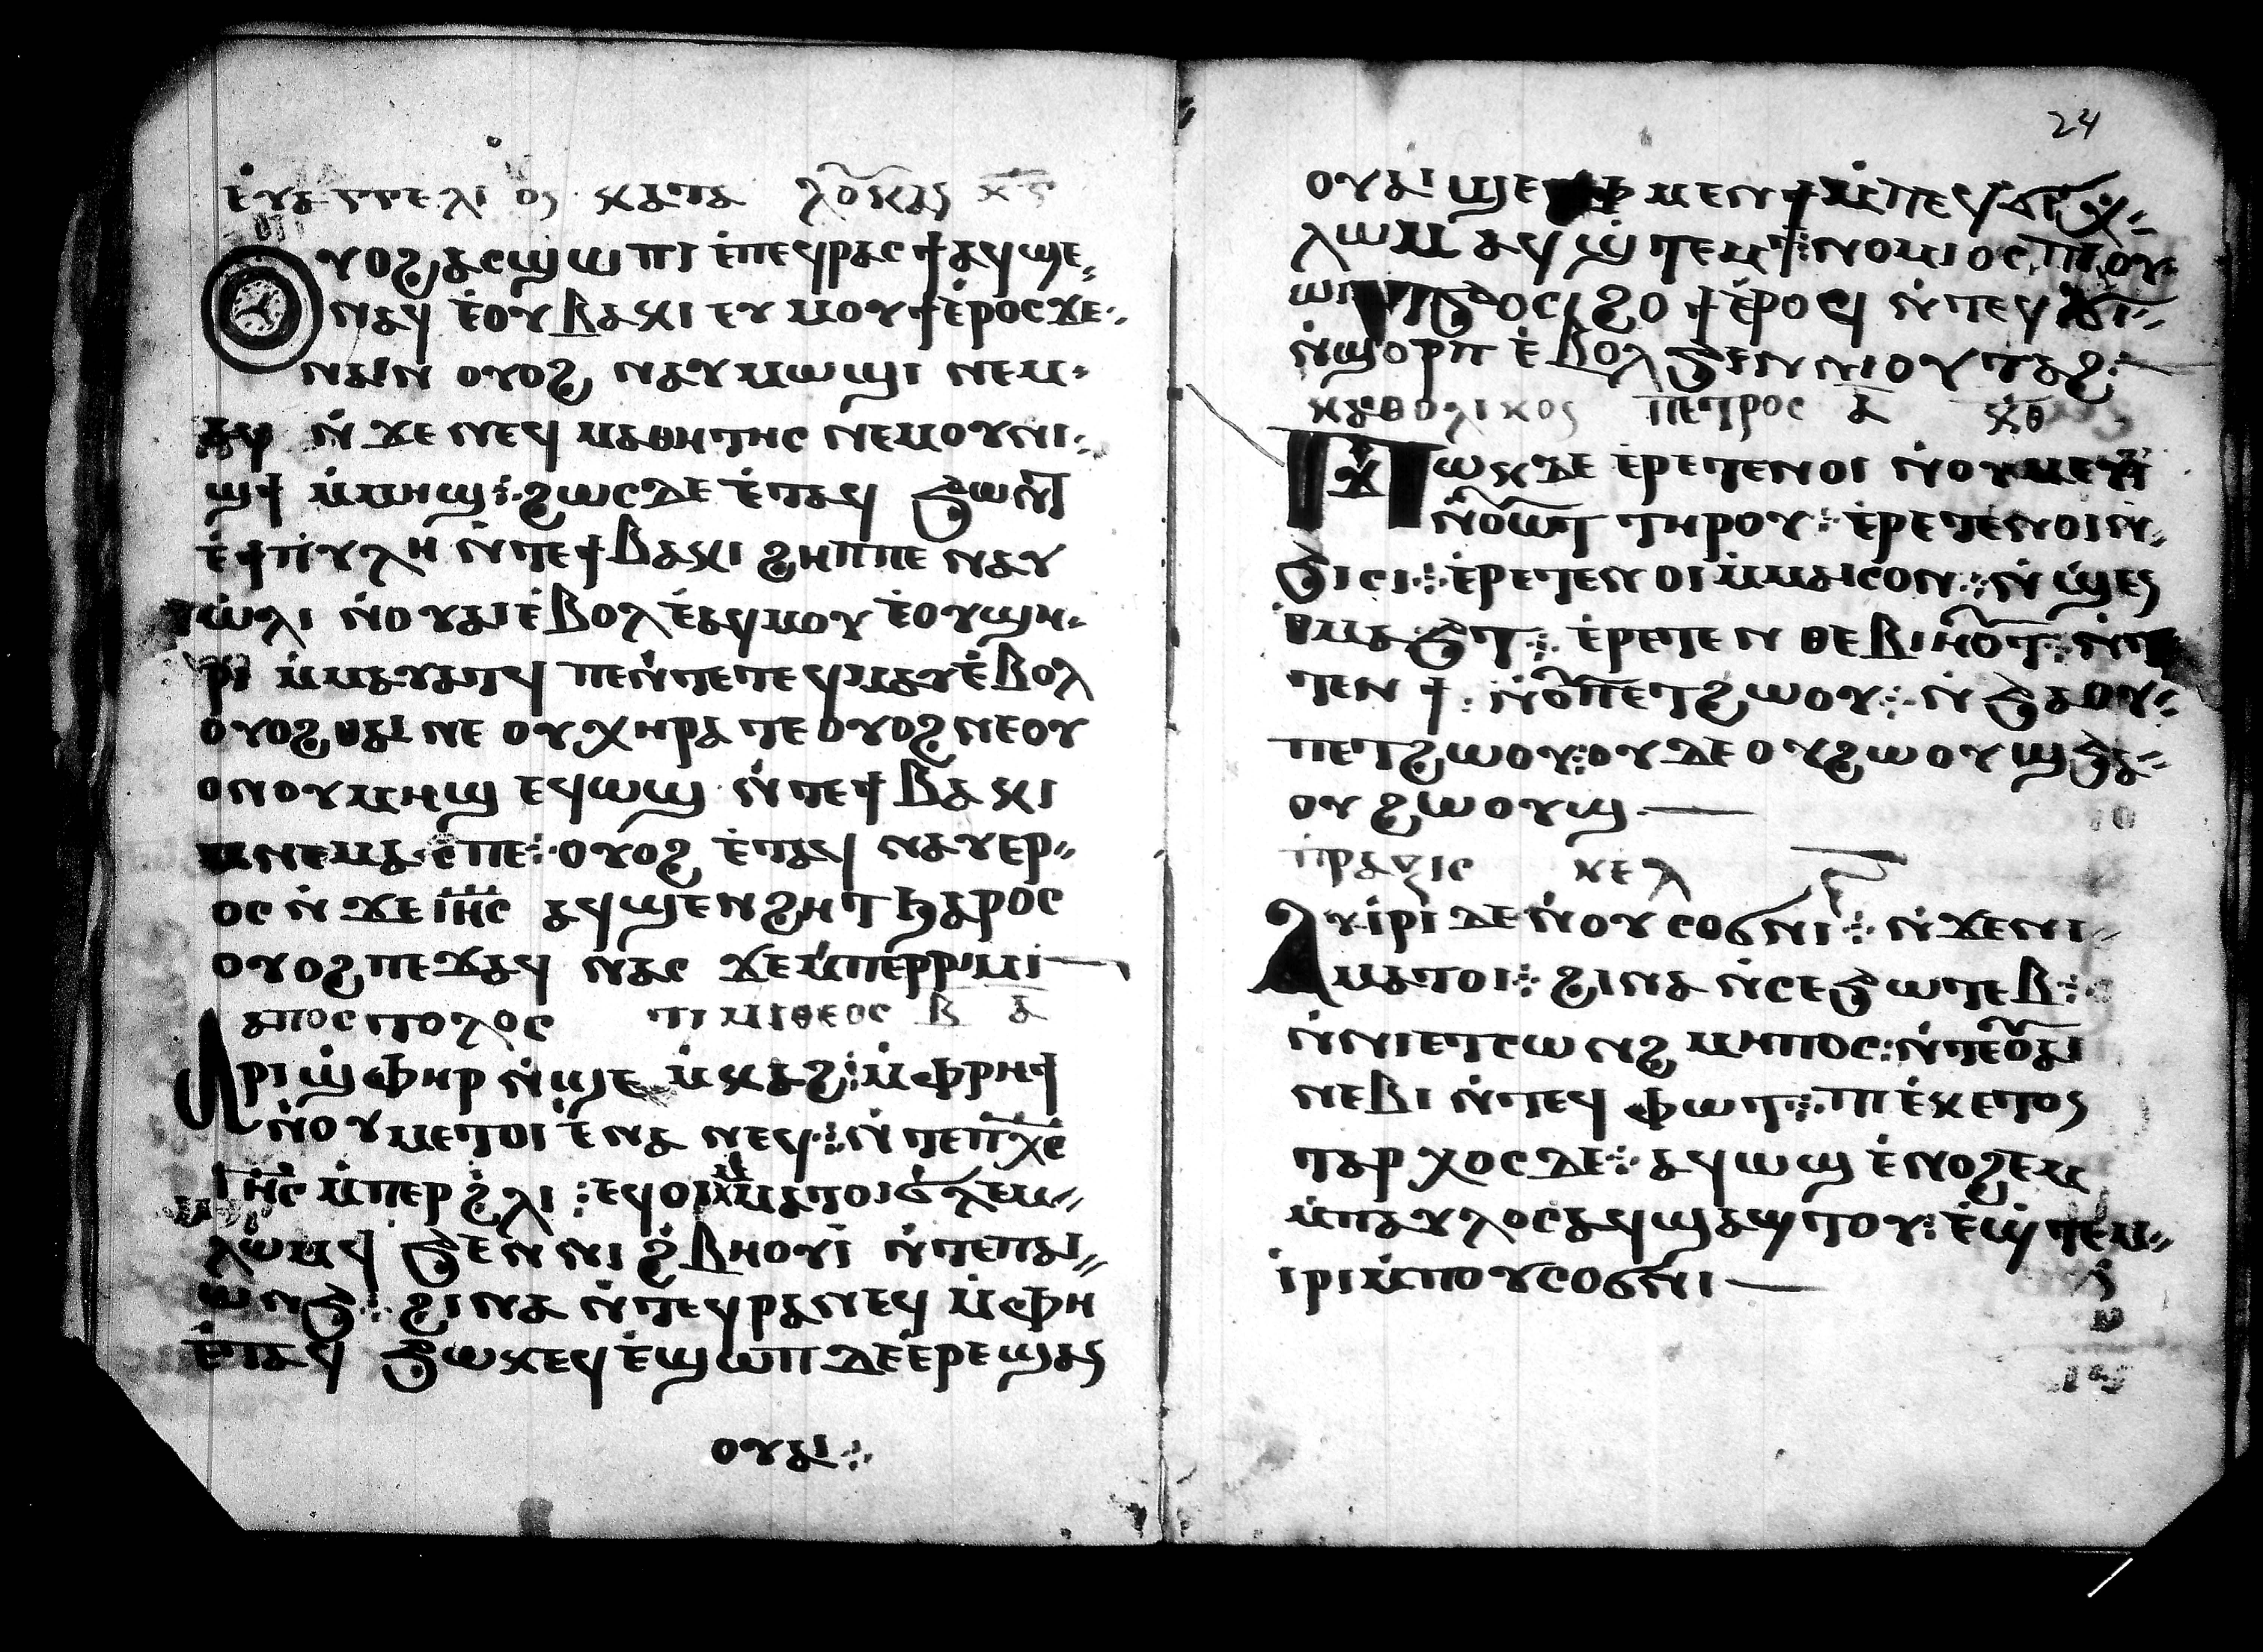 ⲉ̀ⲩⲁⲅⲅⲉⲗⲓⲟⲥ ⲕⲁⲧⲁ ⲗⲟⲩⲕⲁⲥ ⲕ̅ⲋ̅
ⲟⲩⲟϩ ⲁⲥϣⲱⲡⲓ ⲉ̀ⲡⲉϥⲣⲁⲥϯ ⲁϥϣⲉ⸗
ⲛⲁϥ ⲉ̀ⲟⲩⲃⲁⲕⲓ ⲉⲩⲙⲟⲩϯ ⲉ̀ⲣⲟⲥ ϫⲉ⸗
ⲛⲁⲓ̀ⲛ ⲟⲩⲟϩ ⲛⲁⲩⲙⲱϣⲓ ⲛⲉⲙ⸗
ⲁϥ ⲛ̀ϫⲉ ⲛⲉϥ ⲙⲁⲑⲏⲧⲏⲥ ⲛⲉⲙⲟⲩⲛⲓ⸗
ϣϯ ⲙ̀ⲙⲏϣ⁘ ϩⲱⲥⲇⲉ ⲉ̀ⲧⲁϥ ϧⲱⲛ̀ⲧ
ⲉ̀ϯⲡⲩⲗⲏ ⲛ̀ⲧⲉϯⲃⲁⲕⲓ ϩⲏⲡⲡⲉ ⲛⲁⲩ
ⲱ̀ⲗⲓ ⲛ̀ⲟⲩⲁⲓ ⲉ̀ⲃⲟⲗ ⲉ̀ⲁϥⲙⲟⲩ ⲉ̀ⲟⲩϣⲏ⸗
ⲣⲓ ⲙ̀ⲙⲁⲩⲁⲧϥ ⲡⲉⲛ̀ⲧⲉⲧⲉϥⲙⲁⲩ ⲉ̀ⲃⲟⲗ
ⲟⲩⲟϩ ⲑⲁⲓ ⲛⲉ ⲟⲩⲭⲏⲣⲁ ⲧⲉ ⲟⲩⲟϩ ⲛⲉⲟⲩ
ⲟⲛⲟⲩⲙⲏϣ ⲉϥⲱϣ ⲛ̀ⲧⲉϯⲃⲁⲕⲓ
ⲛⲉⲙⲁⲥ̀ⲡⲉ⁘ ⲟⲩⲟϩ ⲉ̀ⲧⲁϥ ⲛⲁⲩⲉⲣ⸗
ⲟⲥ ⲛ̀ϫⲉ ⲓ̅ⲏ̅ⲥ̅ ⲁϥϣⲉⲛϩⲏⲧ ϧⲁⲣⲟⲥ
ⲟⲩⲟϩ ⲡⲉϫⲁϥ ⲛⲁⲥ ϫⲉⲙ̀ⲡⲉⲣⲣⲓⲙⲓ
ⲁⲡⲟⲥⲧⲟⲗⲟⲥ ⲧⲓⲙⲓⲑⲉⲟⲥ ⲃ̅ ⲁ̅
ⲁⲣⲓϣ̀ⲫⲏⲣ ⲛ̀ϣⲉⲙ̀ⲕⲁϩ⁘ ⲙ̀ⲫⲣⲏϯ
ⲛ̀ⲟⲩⲙⲉⲧⲟⲓ ⲉ̀ⲛⲁⲛⲉϥ⁘ ⲛ̀ⲧⲉⲡⲭ̅ⲥ̅
ⲓ̅ⲏ̅ⲥ̅ ⲙ̀ⲡⲉⲣϩ̀ⲗⲓ⁘ ⲉϥⲟⲓⲙ̀ⲙⲁⲧⲟⲓ ϭ̀ⲗⲉⲙ⸗
ⲗⲱⲙϥ ϧⲉⲛ ⲛⲓϩ̀ⲃⲏⲟⲩⲓ̀ ⲛ̀ⲧⲉⲡⲁⲓ⸗
ⲱⲛϧ⁘ ϩⲓⲛⲁ ⲛ̀ⲧⲉϥⲣⲁⲛⲉϥ ⲙ̀ⲫⲏ
ⲉ̀ⲧⲁϥ ϧⲱⲕⲉϥ ⲉ̀ϣⲱⲡ ⲇⲉ ⲉ̀ⲣⲉϣⲁⲥ
ⲟⲩⲁⲓ⁘
24
ⲟⲩⲁⲓ ϣⲉ ⲙⲉⲛϯ ⲙ̀ⲡⲉϥ
ⲗⲱⲙ ⲁϥϣ̀ⲧⲉⲙϯ⁘ ⲛⲟⲙⲓⲟⲥ ⲡⲓⲟⲩ
ϩⲟϯ ⲉ̀ⲣⲟϥ ⲛ̀ⲧⲉϥ
ⲛ̀ϣⲟⲣⲡ ⲉ̀ⲃⲟⲗϧⲉⲛ ⲛⲓⲟⲩⲧⲁϩ⁘
ⲕⲁⲑⲟⲗⲓⲕⲟⲥ ⲡⲉⲧⲣⲟⲥ ⲁ̅ ⲕ̅ⲑ̅
ⲡϫⲱⲕ ⲇⲉ ⲉ̀ⲣⲉⲧⲉⲛⲟⲓ ⲛ̀ⲟⲩⲙⲉⲩⲓ̀
ⲛ̀ⲟⲩⲱⲧ ⲧⲏⲣⲟⲩ⁘ ⲉ̀ⲣⲉⲧⲉⲛⲟⲓⲛ̀⸗
ϧⲓⲥⲓ⁘ ⲉ̀ⲣⲉⲧⲉⲛⲟⲓ ⲙ̀ⲙⲁⲓⲥⲟⲛ⁘ ⲛ̀ϣⲉⲥ
ⲑⲙⲁϧⲧ⁘ ⲉ̀ⲣⲉⲧⲉⲛ ⲑⲉⲃⲓⲏⲟⲩⲧ⁘ ⲛ̀ⲧ
ⲧⲉⲛϯ⁘ ⲛ̀ⲟⲩⲡⲉⲧϩⲱⲟⲩ⁘ ⲛ̀ϧⲁⲟⲩ⸗
ⲡⲉⲧϩⲱⲟⲩ⁘ ⲟⲩⲇⲉ ⲟⲩϩⲱⲟⲩϣ ϧⲁ⸗
ⲟⲩϩⲱⲟⲩϣ
ⲡⲣⲁⲝⲓⲥ ⲕⲉⲗ
ⲁⲩⲓ̀ⲣⲓ ⲇⲉ ⲛ̀ⲟⲩⲥⲟϭⲛⲓ⁘ ⲛ̀ϫⲉⲛⲓ⸗
ⲙⲁⲧⲟⲓ⁘ ϩⲓⲛⲁ ⲛ̀ⲥⲉϧⲱⲧⲉⲃ⁘
ⲛ̀ⲛⲓⲉⲧⲥⲱⲛϩ ⲙⲏⲡⲟⲥ⁘ ⲛ̀ⲧⲉⲟⲩⲁⲓ
ⲛⲉⲃⲓ ⲛ̀ⲧⲉϥ ⲫⲱⲧ⁘ ⲡⲓⲉ̀ⲕⲉⲧⲟⲥ
ⲧⲁⲣⲭⲟⲥ ⲇⲉ⁘ ⲁϥⲱϣ ⲉ̀ⲛⲟϩⲉⲙ
ⲙ̀ⲡⲁⲩⲗⲟⲥ ⲁϥϣⲁϣⲧⲟⲩ⁘ ⲉ̀ϣ̀ⲧⲉⲙ⸗
ⲓ̀ⲣⲓ ⲙ̀ⲡⲟⲩⲥⲟϭⲛⲓ